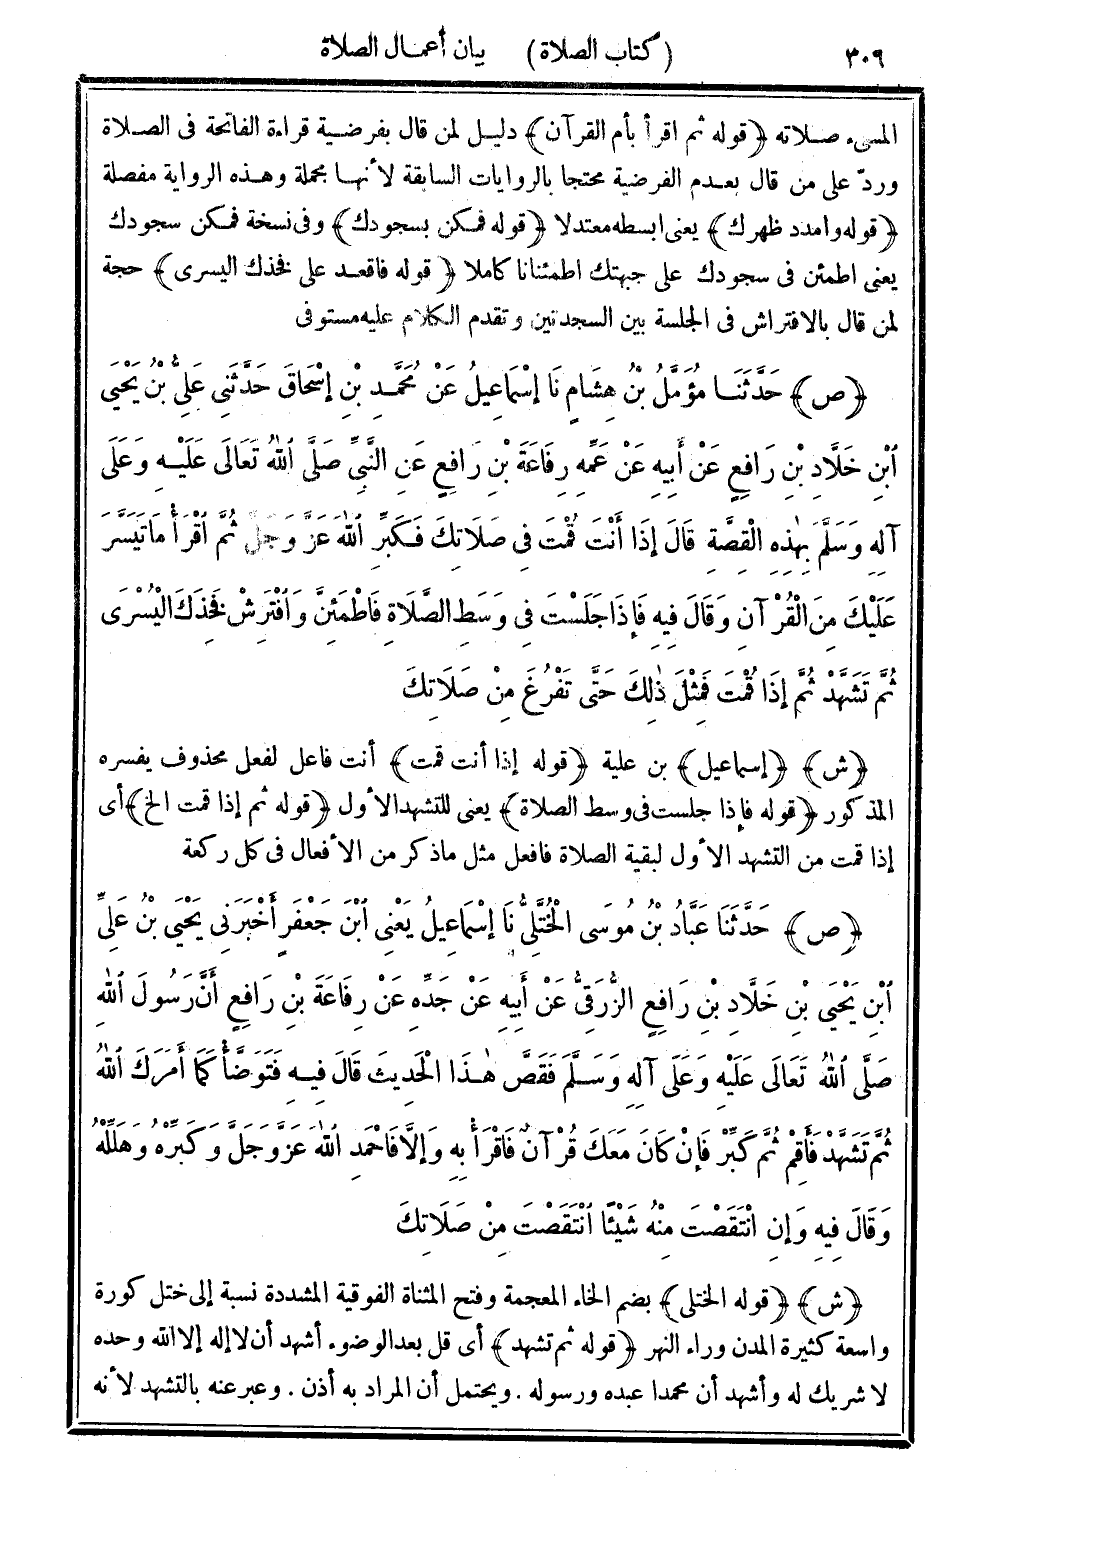 ٣٠٩ (كتاب الصلاة) بيان أعمال الصلاة
المسيء صلاته ﴿قوله ثم اقرأ بأم القرآن﴾ دليل لمن قال بفرضية قراءة الفاتحة فى الصلاة
وردّ على من قال بعدم الفرضية محتجا بالروايات السابقة لأنها مجملة وهذه الرواية مفصلة
﴿قوله وامدد ظهرك﴾ يعنى ابسطه معتدلا ﴿قوله فمكن بسجودك﴾ وفى نسخة فمكن سجودك
يعنى اطمئن فى سجودك على جبهتك اطمئنانا كاملا ﴿قوله فاقعد على فخذك اليسرى﴾ حجة
لمن قال بالافتراش فى الجلسة بين السجدتين وتقدم الكلام عليه مستوفى
﴿ص﴾ حَدَّثَنَا مُؤَمَّلُ بْنُ هِشَامٍ نَا إِسْمَاعِيلُ عَنْ مُحَمَّدِ بْنِ إِسْحَاقَ حَدَّثَنِى عَلِىُّ بْنُ يَحْيَى
ابْنِ خَلَّادِ بْنِ رَافِعٍ عَنْ أَبِيهِ عَنْ عَمِّهِ رِفَاعَةَ بْنِ رَافِعٍ عَنِ النَّبِىِّ صَلَّى اللهُ تَعَالَى عَلَيْهِ وَعَلَى
آلِهِ وَسَلَّمَ بِهٰذِهِ الْقِصَّةِ قَالَ إِذَا أَنْتَ قُمْتَ فِى صَلَاتِكَ فَكَبِّرِ اللهَ عَزَّ وَجَلَّ ثُمَّ اقْرَأْ مَا تَيَسَّرَ
عَلَيْكَ مِنَ الْقُرْآنِ وَقَالَ فِيهِ فَإِذَا جَلَسْتَ فِى وَسَطِ الصَّلَاةِ فَاطْمَئِنَّ وَافْتَرِشْ فَخِذَكَ الْيُسْرَى
ثُمَّ تَشَهَّدْ ثُمَّ إِذَا قُمْتَ فَمِثْلَ ذٰلِكَ حَتَّى تَفْرُغَ مِنْ صَلَاتِكَ
﴿ش﴾ ﴿إسماعيل﴾ بن علية ﴿قوله إذا أنت قمت﴾ أنت فاعل لفعل محذوف يفسره
المذكور ﴿قوله فإذا جلست فى وسط الصلاة﴾ يعنى للتشهد الأول ﴿قوله ثم إذا قمت الخ﴾ أى
إذا قمت من التشهد الأول لبقية الصلاة فافعل مثل ماذكر من الأفعال فى كل ركعة
﴿ص﴾ حَدَّثَنَا عَبَّادُ بْنُ مُوسَى الْخُتَّلِىُّ نَا إِسْمَاعِيلُ يَعْنِى ابْنَ جَعْفَرٍ أَخْبَرَنِى يَحْيَى بْنُ عَلِىِّ
ابْنِ يَحْيَى بْنِ خَلَّادِ بْنِ رَافِعٍ الزُّرَقِىُّ عَنْ أَبِيهِ عَنْ جَدِّهِ عَنْ رِفَاعَةَ بْنِ رَافِعٍ أَنَّ رَسُولَ اللهِ
صَلَّى اللهُ تَعَالَى عَلَيْهِ وَعَلَى آلِهِ وَسَلَّمَ فَقَصَّ هٰذَا الْحَدِيثَ قَالَ فِيهِ فَتَوَضَّأْ كَمَا أَمَرَكَ اللهُ
ثُمَّ تَشَهَّدْ فَأَقِمْ ثُمَّ كَبِّرْ فَإِنْ كَانَ مَعَكَ قُرْآنٌ فَاقْرَأْ بِهِ وَإِلَّا فَاحْمَدِ اللهَ عَزَّ وَجَلَّ وَكَبِّرْهُ وَهَلِّلْهُ
وَقَالَ فِيهِ وَإِنِ انْتَقَصْتَ مِنْهُ شَيْئًا انْتَقَصْتَ مِنْ صَلَاتِكَ
﴿ش﴾ ﴿قوله الختلى﴾ بضم الخاء المعجمة وفتح المثناة الفوقية المشددة نسبة إلى ختل كورة
واسعة كثيرة المدن وراء النهر ﴿قوله ثم تشهد﴾ أى قل بعد الوضوء أشهد أن لا إله إلا الله وحده
لا شريك له وأشهد أن محمدا عبده ورسوله . ويحتمل أن المراد به أذن . وعبر عنه بالتشهد لأنه